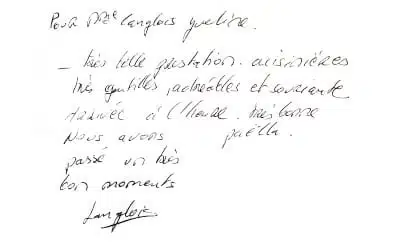 Pour Mme Langlois
_ très belle prestation. cuisinières
très gentilles, adorables et souriante
arrivée à l'heure. très bonne
Nous avons paëlla.
passé un très
bon moments
Langlois